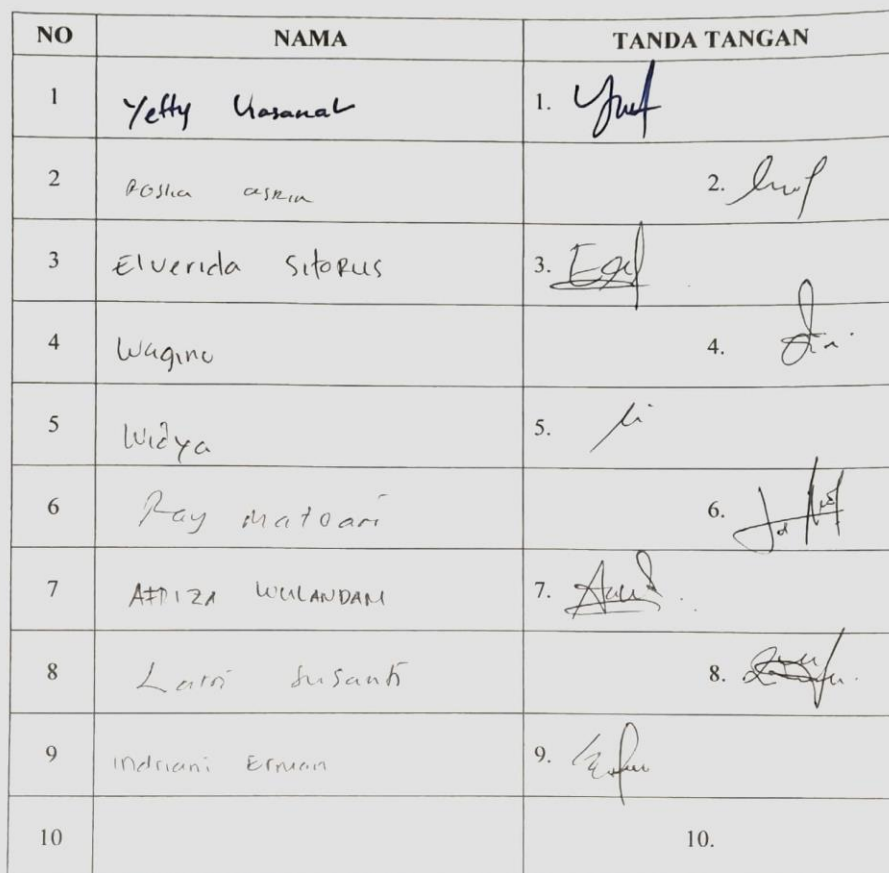 NO NAMA TANDA TANGAN
1 Yetty Hasanah 1.
2 Rosha asrin 2.
3 Elverida Sitorus 3.
4 Wagino 4.
5 Widya 5.
6 Ray Matoari 6.
7 WULANDARI 7.
8 Susanti 8.
9 Indriani Erman 9.
10 10.